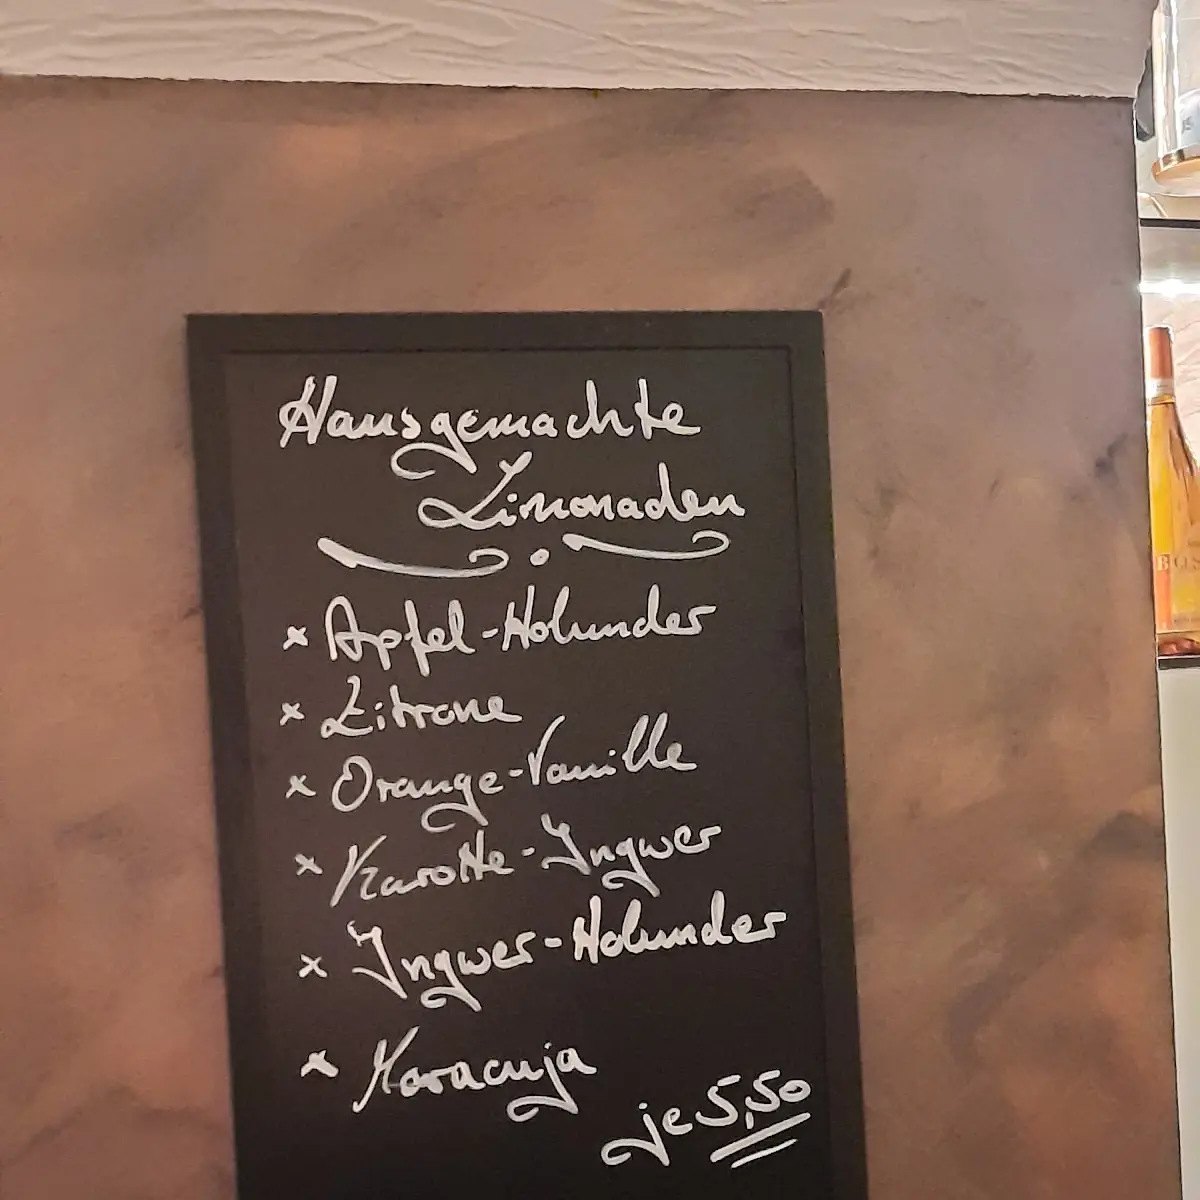 Hausgemachte
Limonaden
x Apfel-Holunder
x Zitrone
x Orange-Vanille
x Karotte-Ingwer
x Ingwer-Holunder
x Maracuja
je 5,50